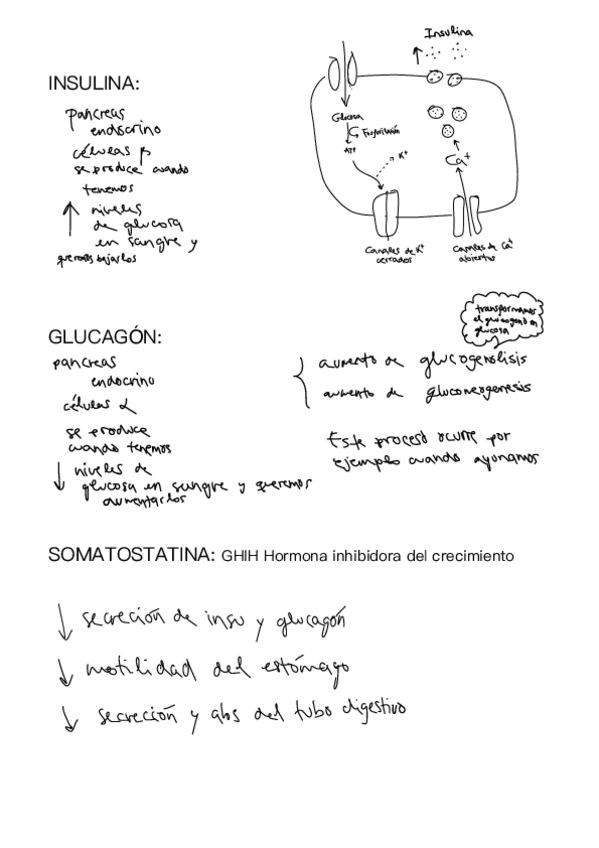 INSULINA:
Pancreas
endocrino
células β
se produce cuando
tenemos
↑ niveles
de glucosa
en sangre y
queremos bajarlos
Insulina
Glucosa
Fosforilación
ATP
K+
Ca+
Canales de K+
cerrados
Canales de Ca+
abiertos
GLUCAGÓN:
pancreas
endocrino
células α
se produce
cuando tenemos
↓ niveles de
glucosa en sangre y queremos
aumentarlos
transformamos
el glucogeno en
glucosa
aumento de glucogenolisis
aumento de gluconeogenesis
Este proceso ocurre por
ejemplo cuando ayunamos
SOMATOSTATINA: GHIH Hormona inhibidora del crecimiento
↓ secreción de insu y glucagón
↓ motilidad del estómago
↓ secreción y abs del tubo digestivo